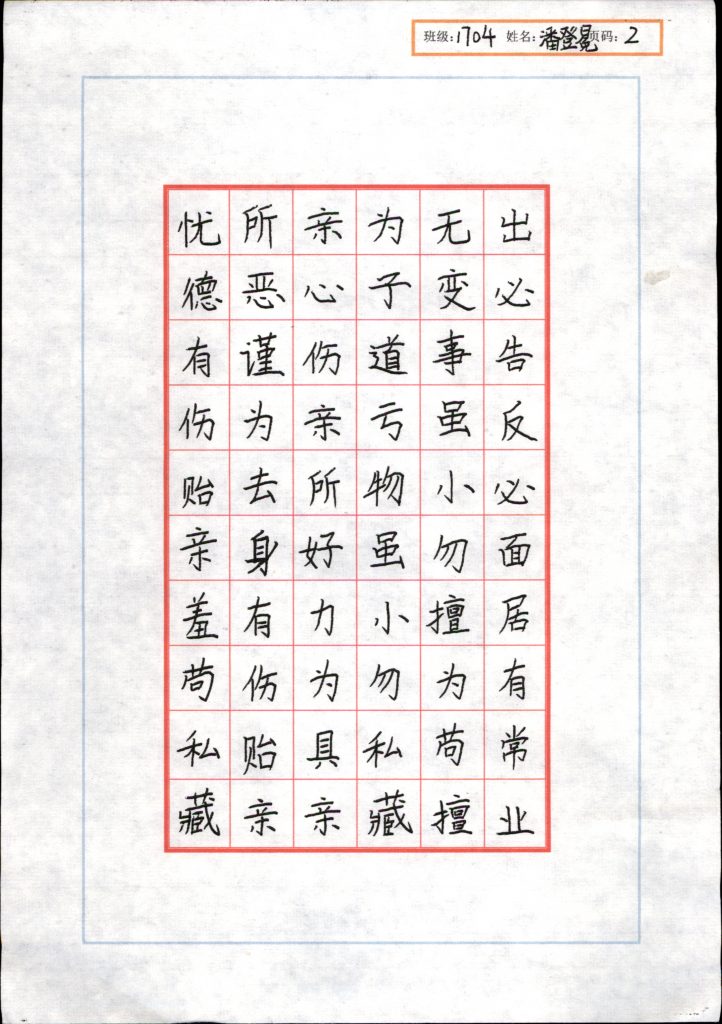 班级:1704 姓名:潘登冕 页码:2
出必告反必面居有常业
无变事虽小勿擅为苟擅
为子道亏物虽小勿私藏
亲心伤亲所好力为具亲
所恶谨为去身有伤贻亲
忧德有伤贻亲羞苟私藏